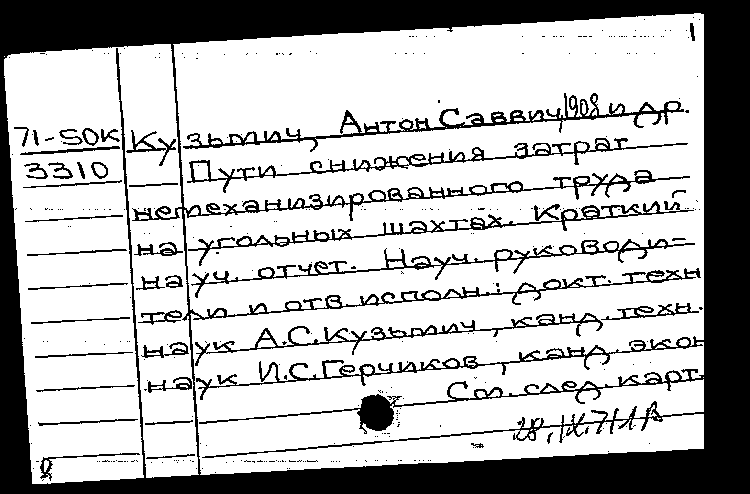 1
71-50К Кузьмич, Антон Саввич, 1908 и др.
3310 Пути снижения затрат
немеханизированного труда
на угольных шахтах. Краткий
науч. отчет. Науч. руководи-
тели и отв исполн.: докт. техн
наук А.С. Кузьмич, канд. техн.
наук И.С. Герчиков, канд. экон
См. след. карт.
28.IX.71